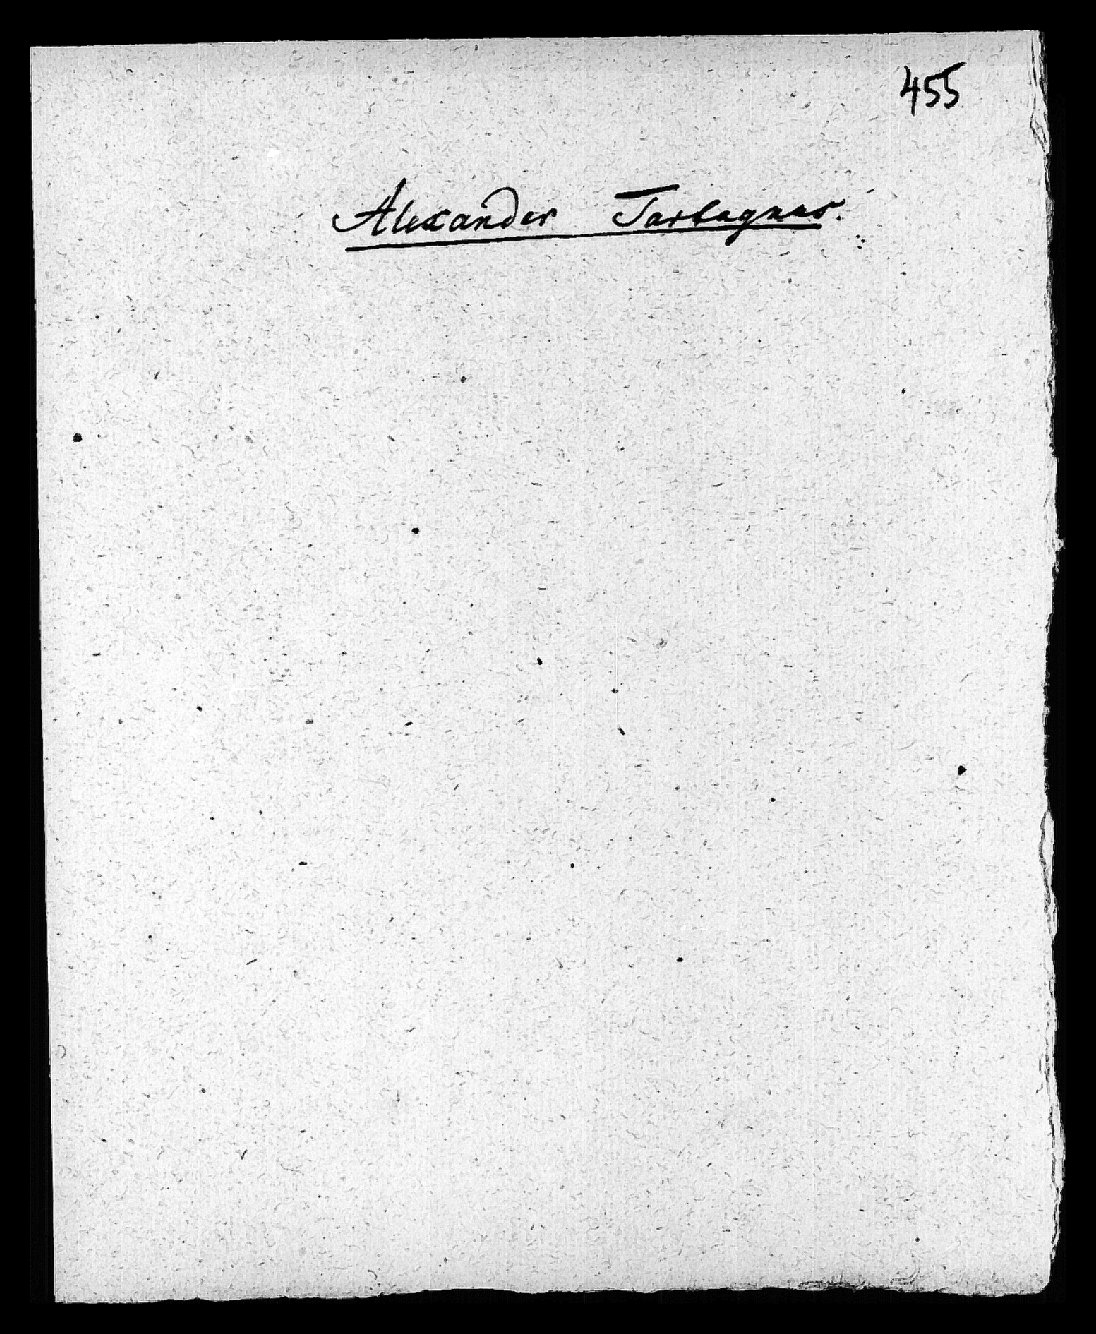 455
Alexander Tartagnus.